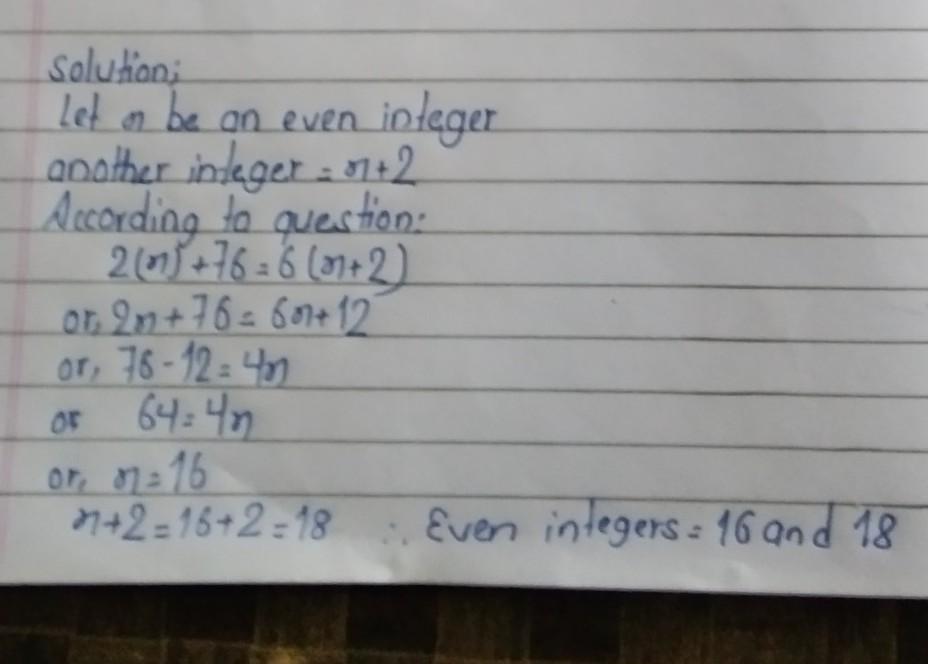 Solution;
Let n be an even integer
another integer = n+2
According to question:
2(n) + 76 = 6 (n+2)
or, 2n + 76 = 6n+12
or, 76 - 12 = 4n
or 64 = 4n
or, n = 16
n+2 = 16+2 = 18 ∴ Even integers = 16 and 18